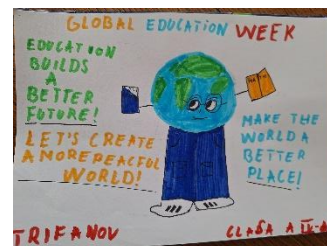 GLOBAL EDUCATION WEEK
EDUCATION
BUILDS
A
BETTER
FUTURE!
LET'S CREATE
A MORE PEACEFUL
WORLD!
MATH
MAKE THE
WORLD A
BETTER
PLACE!
TRIFANOV
CLASA A IX-A